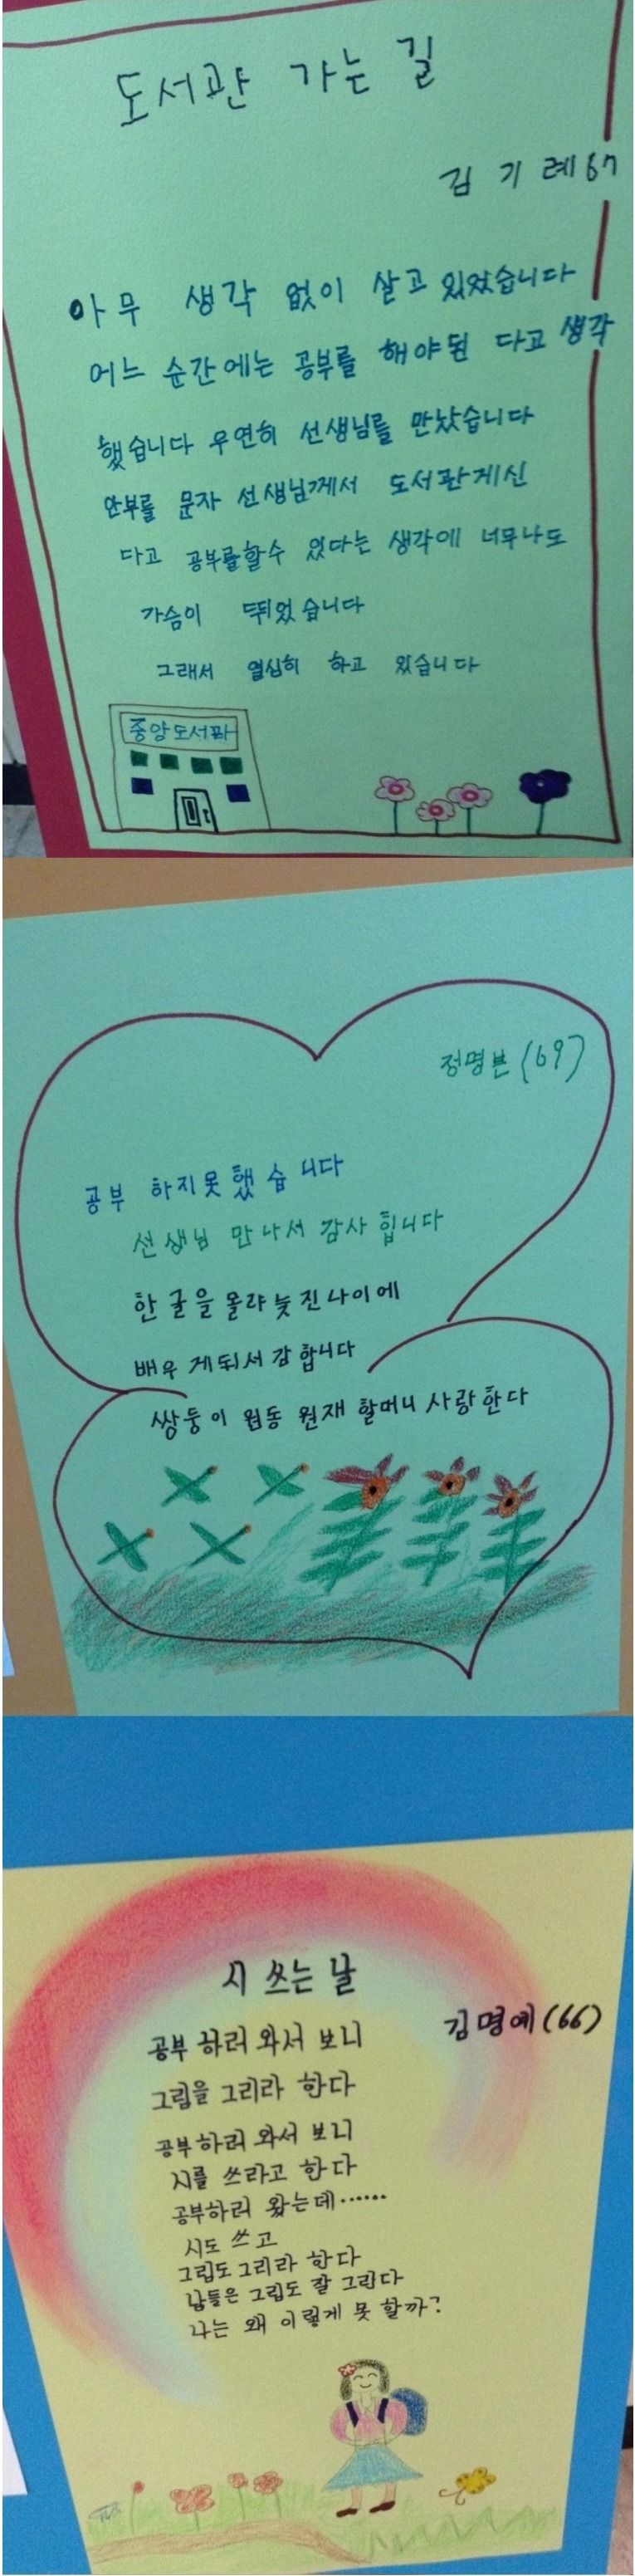 도서관 가는 길
김기례67
아무 생각 없이 살고 있았습니다
어느 순간에는 공부를 해야된 다고 생각
했습니다 우연히 선생님를 만났습니다
안부를 문자 선생님께서 도서관게신
다고 공부를할수 있다는 생각에 너무나도
가슴이 뛰었습니다
그래서 열심히 하고 있습니다
중앙도서관
정명본(69)
공부 하지못했습니다
선생님 만나서 감사힙니다
한글을 올라늦진나이에
배우게되서감합니다
쌍둥이 원동 원재 할머니 사랑한다
시 쓰는 날
김명예(66)
공부하러 와서 보니
그림을 그리라 한다
공부하러 와서 보니
시를 쓰라고 한다
공부하러 왔는데……
시도 쓰고
그림도그리라 한다
남들은 그림도 잘 그린다
나는 왜 이렇게 못 할까?